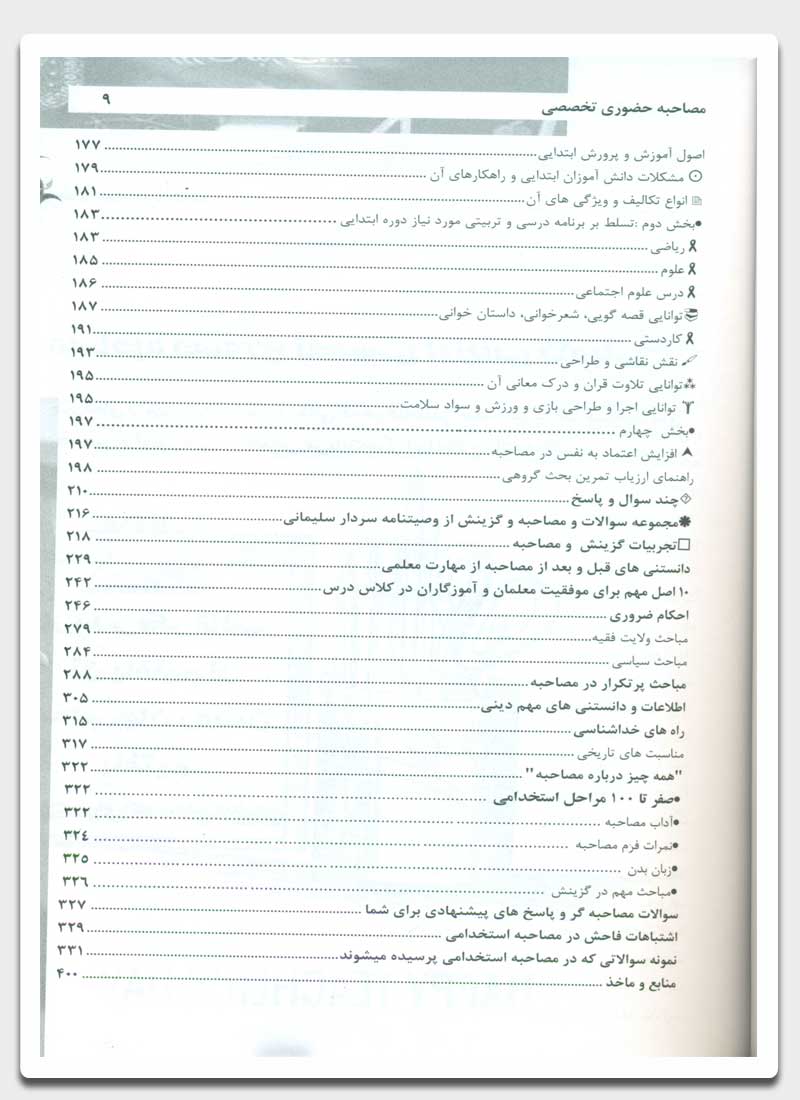 مصاحبه حضوری تخصصی ۹
اصول آموزش و پرورش ابتدایی ۱۷۷
مشکلات دانش آموزان ابتدایی و راهکارهای آن ۱۷۹
انواع تکالیف و ویژگی های آن ۱۸۱
●بخش دوم :تسلط بر برنامه درسی و تربیتی مورد نیاز دوره ابتدایی ۱۸۳
ریاضی ۱۸۳
علوم ۱۸۵
درس علوم اجتماعی ۱۸۶
توانایی قصه گویی، شعرخوانی، داستان خوانی ۱۸۷
کاردستی ۱۹۱
نقش نقاشی و طراحی ۱۹۳
توانایی تلاوت قران و درک معانی آن ۱۹۵
توانایی اجرا و طراحی بازی و ورزش و سواد سلامت ۱۹۵
●بخش چهارم ۱۹۷
افزایش اعتماد به نفس در مصاحبه ۱۹۷
راهنمای ارزیاب تمرین بحث گروهی ۱۹۸
چند سوال و پاسخ ۲۱۰
مجموعه سوالات و مصاحبه و گزینش از وصیتنامه سردار سلیمانی ۲۱۶
تجربیات گزینش و مصاحبه ۲۱۸
دانستنی های قبل و بعد از مصاحبه از مهارت معلمی ۲۲۹
۱۰ اصل مهم برای موفقیت معلمان و آموزگاران در کلاس درس ۲۴۲
احکام ضروری ۲۴۶
مباحث ولایت فقیه ۲۷۹
مباحث سیاسی ۲۸۴
مباحث پرتکرار در مصاحبه ۲۸۸
اطلاعات و دانستنی های مهم دینی ۳۰۵
راه های خداشناسی ۳۱۵
مناسبت های تاریخی ۳۱۷
"همه چیز درباره مصاحبه" ۳۲۲
●صفر تا ۱۰۰ مراحل استخدامی ۳۲۲
●آداب مصاحبه ۳۲۲
●نمرات فرم مصاحبه ۳۲٤
●زبان بدن ۳۲۵
●مباحث مهم در گزینش ۳۲٦
سوالات مصاحبه گر و پاسخ های پیشنهادی برای شما ۳۲۷
اشتباهات فاحش در مصاحبه استخدامی ۳۲۹
نمونه سوالاتی که در مصاحبه استخدامی پرسیده میشوند ۳۳۱
منابع و ماخذ ۴۰۰